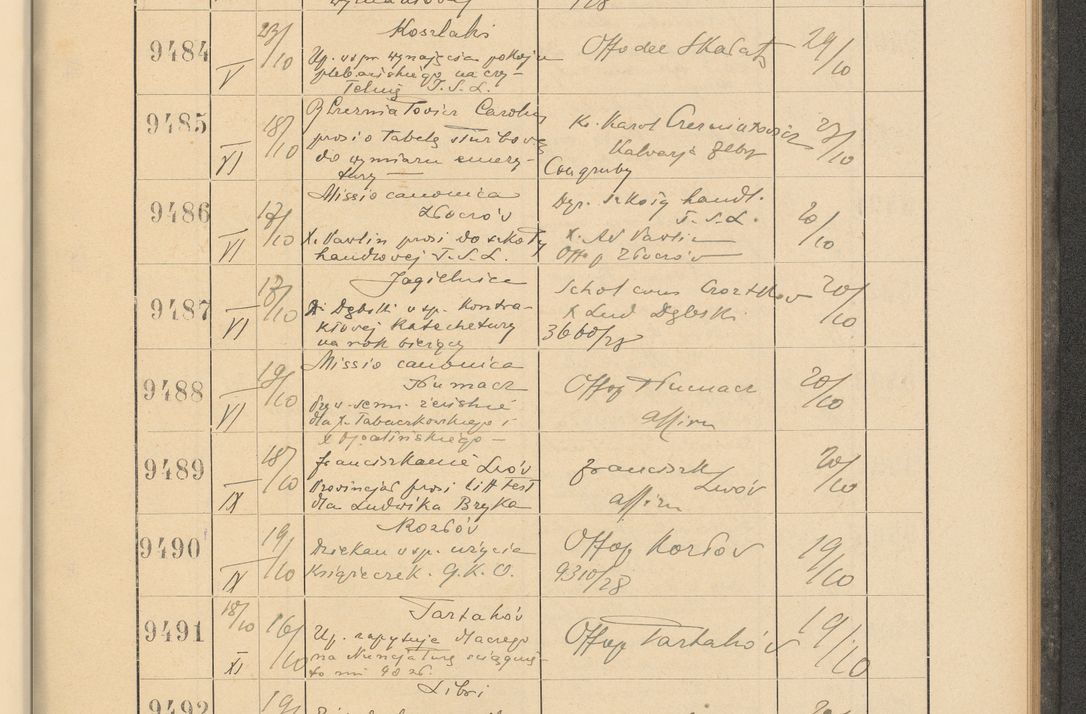 9484 V 23/10 Koszlaki
Up. w spr. wynajęcia pokoju
plebańskiego na czy-
telnię T.S.L.
Offo dec Skałat 29/10
9485 VI 18/10 Czermiatowicz Carolus
prosi o tabelę służbową
do wymiaru emery-
tury —
Ks. Karol Czermiatowicz
Kalwarja Zebr
Congruby 23/10
9486 VI 17/10 Missio canonica
Złoczów
X. Pavlin prosi do szkoły
handlowej T.S.L.
Dyr. szkoły handl.
T.S.L.
X. Ad Pavlin
Offop Złoczów 20/10
9487 VI 17/10 Jagielnica
X Dębski w sp. kontra-
ktowej katechetury
na rok bieżący
Schol Czortków
X Lud Dębski
3660/28 20/10
9488 VI 19/10 Missio canonica
Tłumacz
sem. żeńskie
dla X. Tabaczkowskiego i
X Opalińskiego —
Offop Tłumacz
affirm 20/10
9489 IX 18/10 Franciszkanie Lwów
Prowincjał prosi litt test
dla Ludwika Bryka
Franciszk
Lwów
affirm 20/10
9490 IX 19/10 Kozłów
Dziekan w sp. użycia
Książeczek. G.K.O.
Offop Kozłów
9310/28 19/10
9491 18/10 XI 16/10 Tartaków
Up. zapytuje dlaczego
na Nuncjaturę ściągnię-
to mu
Offop Tartaków 19/10
9492 19/ Libri